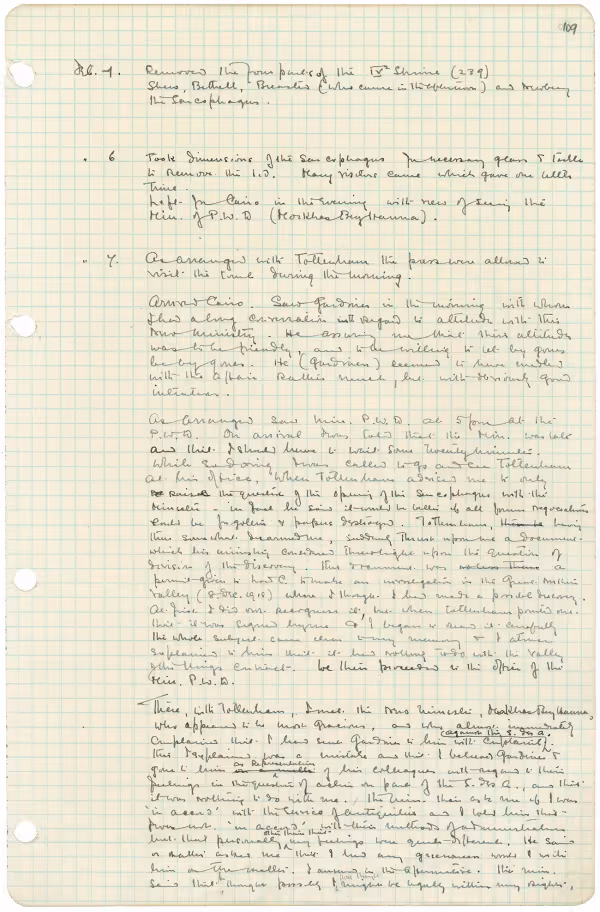 109
Feb. 4. Removed the four parts of the IVth Shrine (239)
Shens, Bethell, Breasted (who came in the afternoon) and Newberry
the Sarcophagus.
" 6 Took dimensions of the Sarcophagus for necessary gear & tackle
to remove the lid. Many visitors came which gave one little
time.
Left for Cairo in the evening with view of seeing the
Min. of P.W.D (Morkhos Bey Hanna).
" 7. As arranged with Tottenham the press were allowed to
visit the tomb during the morning.
Arrived Cairo. Saw Gardiner in the morning with whom
I had a long conversation with regard to attitude with this
New Ministry - He assuring me that their attitude
was to be friendly, and to be willing to let by gones
be by gones. He (Gardiner) seemed to have meddled
with the affair rather much, but with obviously good
intentions.
As arranged saw Min. P.W.D. at 5 pm at the
P.W.D. On arrival I was told that the Min. was late
and that I should have to wait some twenty minutes.
While so doing I was called to go and see Tottenham
at his office, when Tottenham advised me to only
raise the question of the opening of the Sarcophagus with the
Minister - in fact he said it would be better if all former negociations
could be forgotten & papers destroyed. Tottenham, having
thus somewhat disarmed me, suddenly thrust upon me a document
which his ministry considered threw light upon the question of
division of the discovery. This document was a
permit given to Lord C. to make an investigation in the Great Northern
Valley (8 Dec. 1918) where I thought I had made a possible discovery.
At first I did not recognise it, but when Tottenham pointed out
that it was signed by me & I began to read it carefully
the whole subject came clear to my memory & I at once
explained to him that it had nothing to do with the Valley
of the Kings contract. We then proceeded to the office of the
Min. P.W.D.
There, with Tottenham, I met the new Minister, Morkhos Bey Hanna,
who appeared to be most gracious, and who almost immediately
(against the S. des A.)
complained that I had sent Gardiner to him with complaints.
This I explained was a mistake and that I believed Gardiner
as representative
gone to him of his colleagues with regard to their
feelings in the question of action on part of the S. des A., and that
it was nothing to do with me. The Min. then asks me if I was
'in accord' with the Service of Antiquities and I told him that
I was not 'in accord' with their methods of administration
other than that
but that personally my feelings were quite different. He said
or rather asked me that if I had any grievances would I write
him on the matter. I answered in the affirmative. The Min.
said that thought possibly I might be legally within my rights,